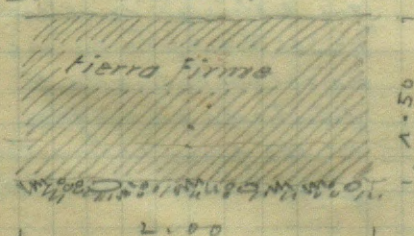 tierra firme
1.50
2.00